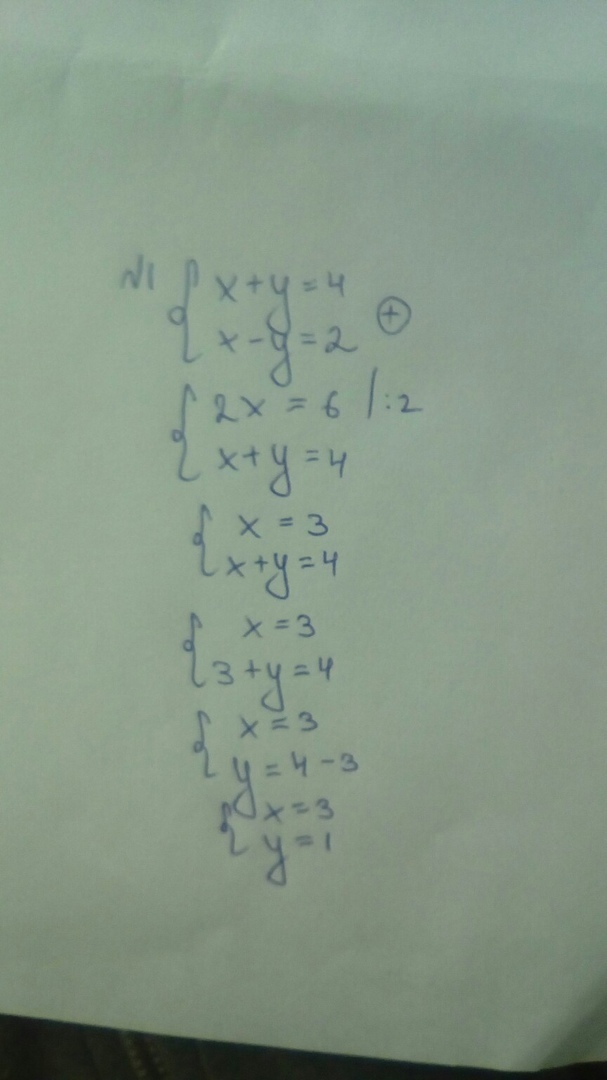 N1 { x+y=4
x-y=2 ⊕
{ 2x = 6 |:2
x+y=4
{ x = 3
x+y=4
{ x=3
3+y=4
{ x=3
y=4-3
{ x=3
y=1